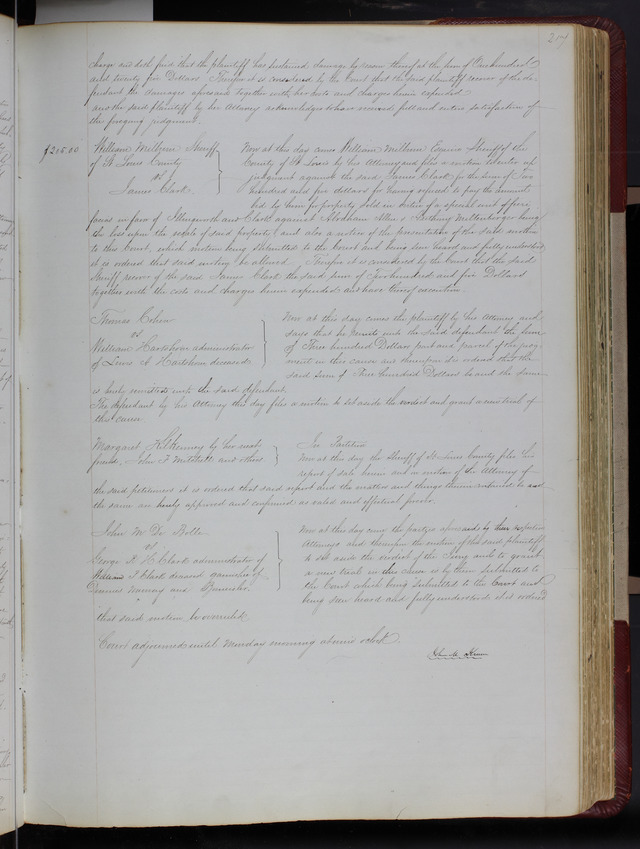 217
charge and doth find that the plaintiff has sustained damage by reason thereof at the sum of One hundred
and seventy five Dollars. Therefore it is considered by the Court that the said plaintiff recover of the de-
fendant the damages aforesaid together with her costs and charges herein expended
and the said plaintiff by her Attorney acknowledges to have received full and entire satisfaction of
the foregoing judgment.
$205.00
William Milburn Sheriff
of St Louis County
vs
James Clark
Now at this day comes William Milburn Esquire Sheriff of the
County of St Louis by his Attorney and files a motion to enter up
judgment against the said James Clark for the sum of two
hundred and five dollars for having refused to pay the amount
bid by him for property sold in virtue of a special writ of fieri
facias in favor of Illingworth and Clark against Abraham Allen &amp; Anthony being
the loss upon the resale of said property and also a notice of the presentation of the said motion
to this Court, which motion being submitted to the Court and being seen heard and fully understood
it is ordered that said motion be allowed. Therefore it is considered by the Court that the said
Sheriff recover of the said James Clark the said sum of Two hundred and five Dollars
together with the costs and charges herein expended and have thereof execution.
Thomas Cohen
vs
William Hartshorn administrator
of Lewis Hartshorn deceased
Now at this day comes the plaintiff by his Attorney and
says that he remits unto the said defendant the sum
of Three hundred Dollars part and parcel of the judg-
ment in this cause and therefore it is ordered that the
said sum of Three hundred Dollars be and the same
is hereby remitted unto the said defendant.
The defendant by his Attorney this day files a motion to set aside the verdict and grant a new trial of
this cause
Margaret Kilkenney by her next
friend, John F Mitchell and others
In Partition
Now at this day the Sheriff of St Louis County files his
report of sale herein and on motion of the Attorney of
the said petitioners it is ordered that said report and the matters and things therein contained be and
the same are hereby approved and confirmed as valid and effectual forever.
John W De Bolle
vs
George R H Clark administrator of
William P Clark deceased garnishee of
and Bannister
Now at this day come the parties aforesaid by their respective
Attorneys and thereupon the motion of the said plaintiff
to set aside the verdict of the Jury and to grant
a new trial in this cause is by them submitted to
the Court which being submitted to the Court and
being seen heard and fully understood it is ordered
that said motion be overruled.
Court adjourned until Monday morning at nine oclock.
John M Krum